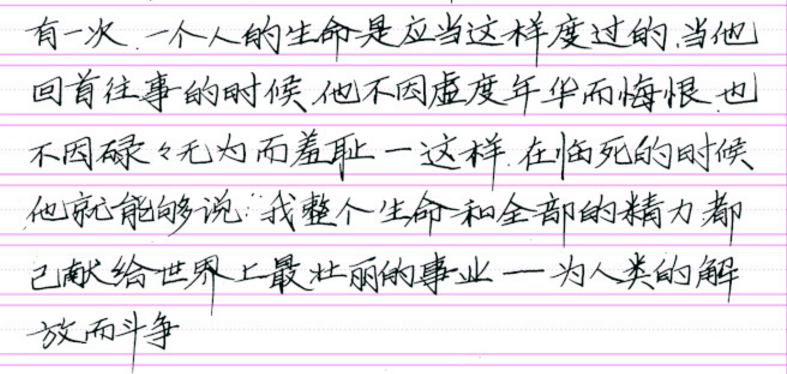 有一次.一个人的生命是应当这样度过的.当他
回首往事的时候.他不因虚度年华而悔恨.也
不因碌々无为而羞耻一这样.在临死的时候
他就能够说:"我整个生命和全部的精力都
已献给世界上最壮丽的事业—为人类的解
放而斗争